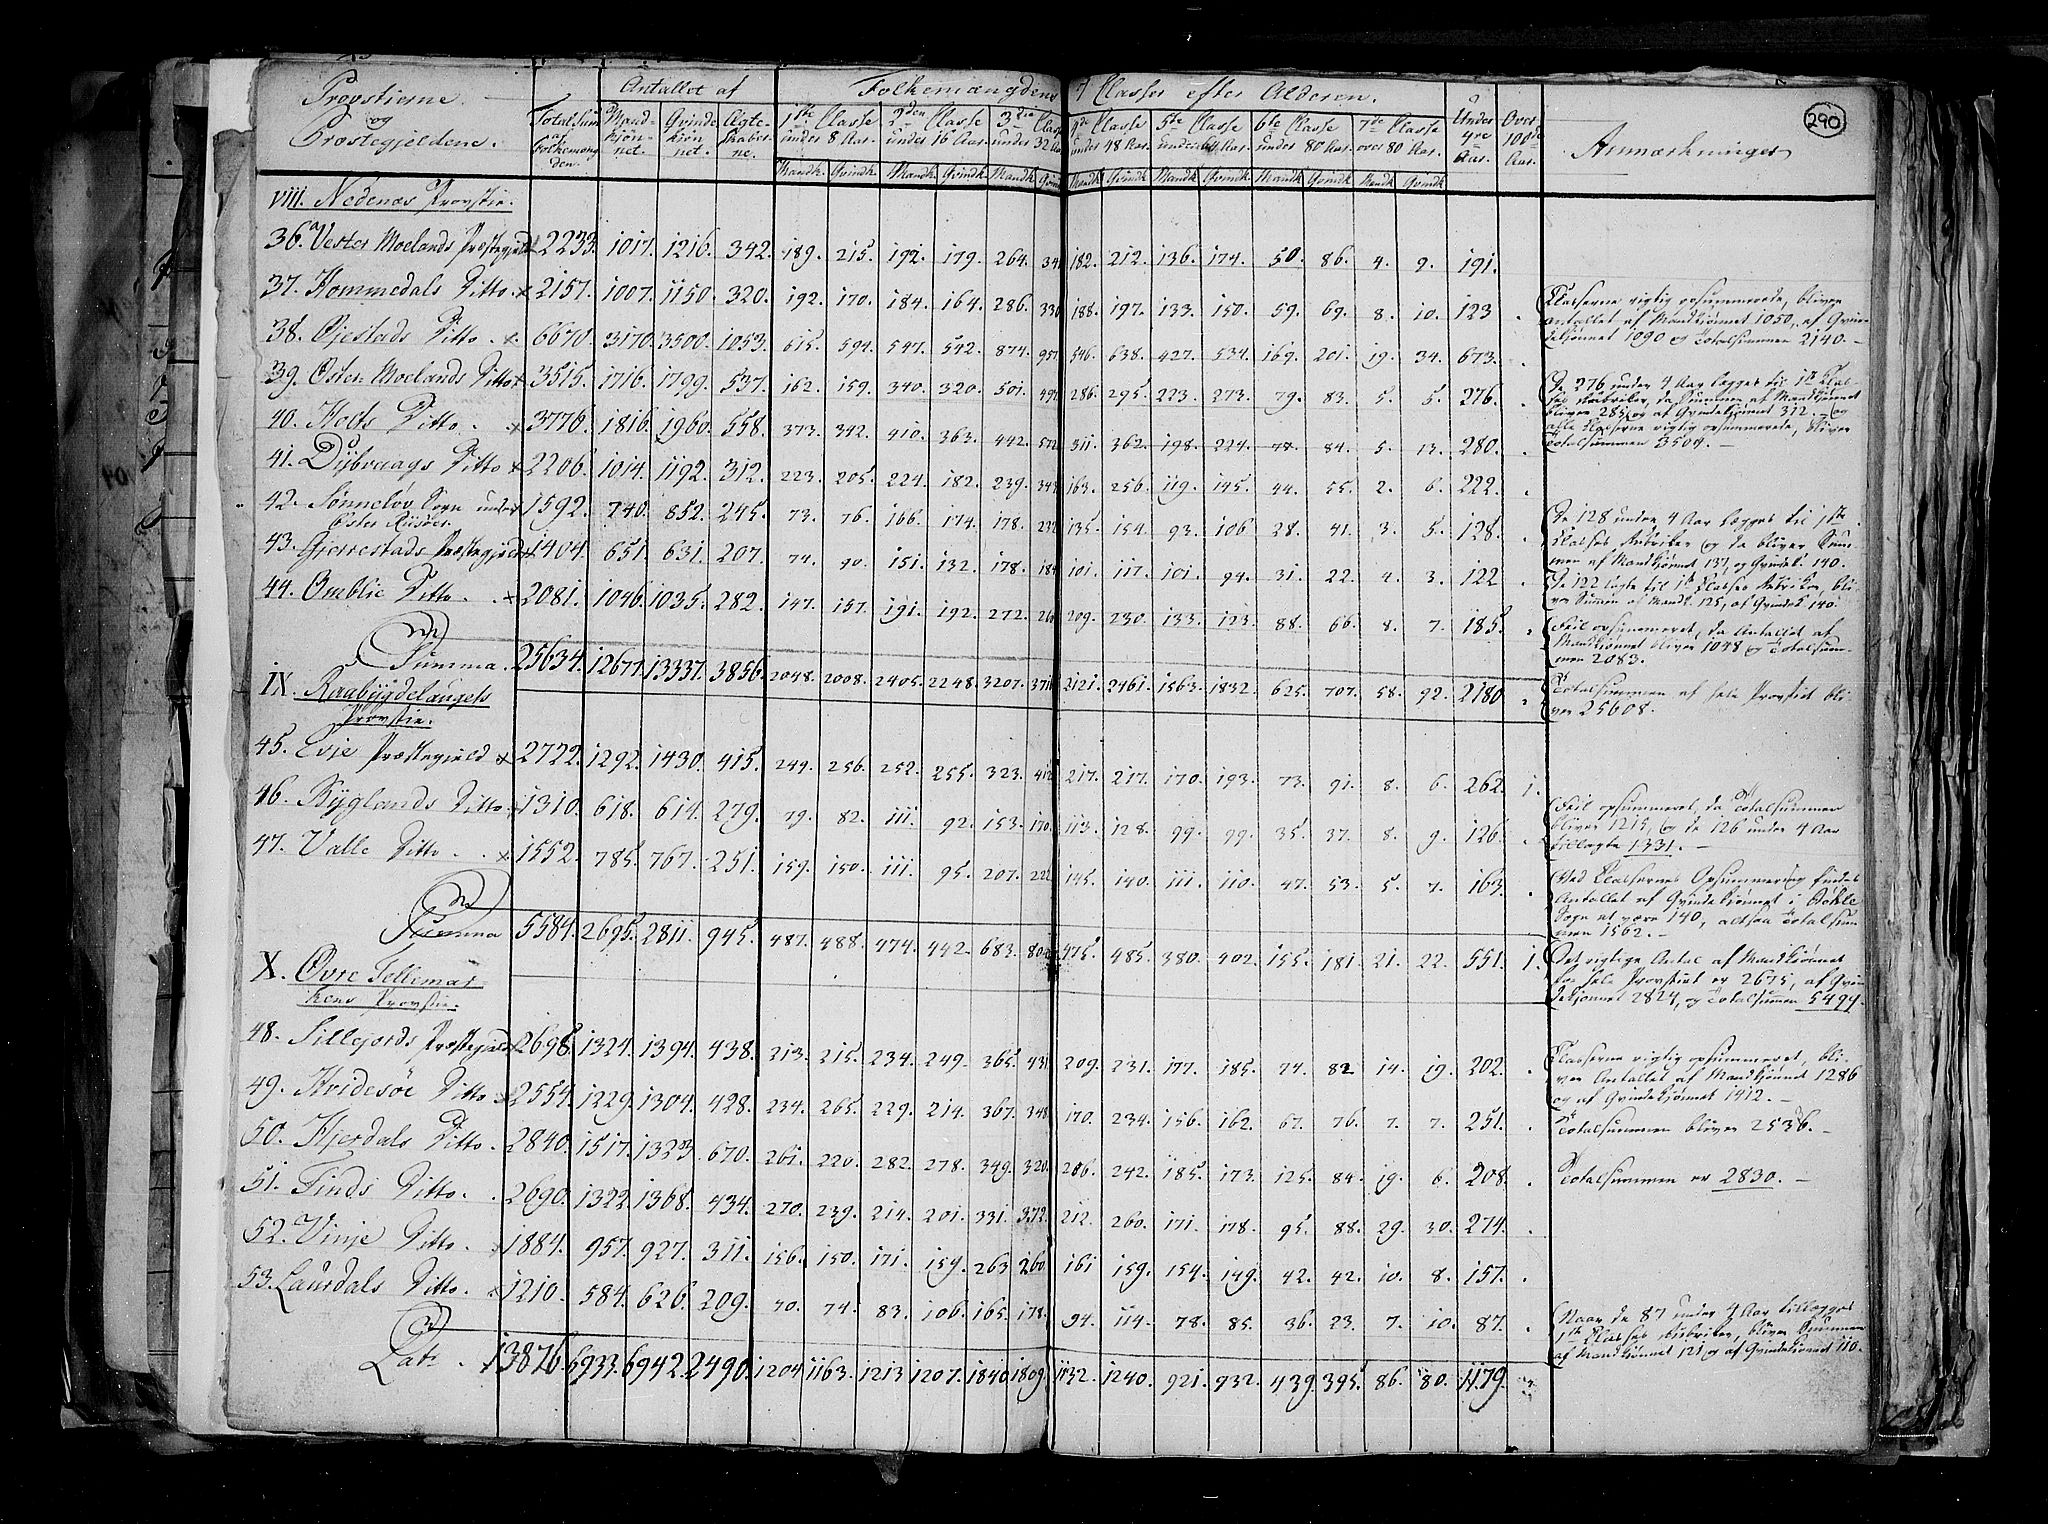 290
Provstierne og Præstegjeldene. | Totalsum af Folkemængden. | Antallet af Mandkiønnet. | Qvindekiønnet. | Ægteskaberne. | Folkemængdens 7 Classer efter Alderen. | Under 4re Aar. | Over 100de Aar. | Anmærkninger
1ste Classe under 8 Aar. | 2den Classe under 16 Aar. | 3die Classe under 32 Aar. | 4de Classe under 48 Aar. | 5te Classe under 64 Aar. | 6te Classe under 80 Aar. | 7de Classe over 80 Aar.
Mandk. Qvindk. Mandk. Qvindk. Mandk. Mandk. Qvindk. Mandk. Qvindk. Mandk. Qvindk. Mandk. Qvindk.
VIII. Nedenæs Provstie.
36. Vester Moelands Præstegjeld 2233. 1017. 1216. 342. 189. 215. 192. 179. 264. 182. 212. 136. 174. 50. 86. 4. 9. 191.
37. Hommedals Ditto x 2157. 1007. 1150. 320. 192. 170. 184. 164. 286. 330 188. 197. 133. 150. 59. 69. 8. 10. 123
Classerne rigtig opsummerede, bliver
Antallet af Mandkiønnet 1050, af Qvin-
dekjønnet 1090 og Totalsummen 2140.
38. Øjestads Ditto. x 6670. 3170. 3500. 1053. 615. 594. 547. 542. 874. 957. 546. 638. 427. 534. 169. 201. 19. 34. 673.
39. Øster Moelands Ditto x 3515. 1716. 1799. 537. 162. 159. 340. 320. 501. 286. 295. 223. 273. 79. 83. 5. 5. 276.
De 276 under 4 Aar lægges til 1ste Clas-
ses Rubriker, da Summen af Mandkjønnet
bliver 285, og af Qvindekjønnet 312. og
alle Classerne rigtig opsummerede, bliver
Totalsummen 3504.
40. Holts Ditto. x 3776. 1816. 1960. 558. 373. 342. 410. 363. 442. 572 311. 362. 198. 224. 84. 5. 13. 280.
41. Dybvaags Ditto x 2206. 1014. 1192. 312. 223. 205. 224. 182. 239. 163. 256. 119. 145. 44. 55. 2. 6. 222.
42. Sønneløv Sogn under
Øster Riisøer. 1592. 740. 852. 245. 73. 76. 166. 174. 178. 232 135. 154. 93. 106 28. 41. 3. 5. 128.
De 128 under 4 Aar lægges til 1ste
Classes Rubriker og da bliver Sum-
men af Mandkjønnet 137, og Qvindek. 140.
43. Gjerrestads Præstegjeld 1404. 651. 631. 207. 74. 90. 151. 132. 178. 184 101. 117. 101. 94. 31. 22. 4. 3. 122
De 122 lagte til 1ste Classes Rubriker, bli-
ver Summen af Mandk. 125, af Qvindek. 140.
44. Omblie Ditto. x 2081. 1046. 1035. 282. 147. 157. 191. 192. 272. 209. 230. 133. 123. 88. 66. 8. 7. 185.
Feil opsummeret, da Antallet af
Mandkjønnet bliver 1048 og Totalsum-
men 2083.
Summa. 25634. 12677. 13337. 3856. 2048. 2008. 2405. 2248. 3207. 2121. 2461. 1563. 1832. 625. 707. 58. 92. 2180.
Totalsummen af hele Provstiet bli-
ver 25608.
IX. Raabygdelaugets
Provstie.
45. Evje Præstegjeld x 2722. 1292. 1430. 415. 249. 256. 252. 255. 323. 412 217. 217. 170. 193. 73. 91. 8. 6. 262. 1.
46. Byglands Ditto. 1310. 618. 614. 279. 79. 82. 111. 92. 153. 170. 113. 128. 99. 99. 35. 37. 8. 9. 126.
Feil opsummeret, da Totalsummen
bliver 1215, og de 126 under 4 Aar
tillagte 1331.
47. Valle Ditto. x 1552. 785. 767. 251. 159. 150. 111. 95. 207. 222 145. 140. 111. 110. 47. 53. 5. 7. 163.
Ved Classernes Opsummering findes
Antallet af Qvindekjønnet i
Sogn at være 140, altsaa Totalsum-
men 1562.
Summa 5584. 2695. 2811. 945. 487. 488. 474. 442. 683. 475. 485. 380. 402. 155. 181. 21. 22. 551. 1.
Det rigtige Antal af Mandkjønnet
for hele Provstiet er 2675, af Qvin-
dekjønnet 2824, og Totalsummen 5499.
X. Øvre Tellemar-
kens Provstie.
48. Sillejords Præstegjeld 2698. 1324. 1394. 438. 213. 215. 234. 249. 365. 431 209. 231. 177. 185. 74. 82 14. 19. 202.
Classerne rigtig opsummeret, bli-
ver Antallet af Mandkjønnet 1286
og af Qvindekjønnet 1412.
49. Hvidesøe Ditto 2554. 1229. 1304. 428. 234. 265. 229. 214. 367. 348. 170. 234. 156. 162. 67. 76. 7. 7. 251.
Totalsummen bliver 2536.
50. Hjerdals Ditto. 2840. 1517. 1323 670. 261. 220. 282. 278. 349. 320. 206. 242. 185. 173. 125. 84. 19. 6. 208.
Totalsummen er 2830.
51. Tinds Ditto. 2690. 1322. 1368. 434. 270. 239. 214. 201. 331. 372. 212. 260. 171. 178. 95. 88. 29. 30. 274.
52. Vinje Ditto. 1884. 957. 927. 311. 156. 150. 171. 159. 263 260. 161 159. 154. 149. 42. 42. 10. 8. 157.
53. Laurdals Ditto. 1210. 584. 626. 209. 70. 74. 83. 106. 165. 178. 94. 114. 78. 85. 36. 23. 7. 10. 87.
Naar de 87 under 4 Aar tillægges
1ste Classes Rubriker, bliver Summen
af Mandkjønnet 121 og af Qvindekjønnet 110.
Lat. 13876. 6933. 6942. 2490. 1204 1163. 1213 1207. 1840 1809. 1132. 1240. 921. 932. 439. 395. 86. 80. 1179.